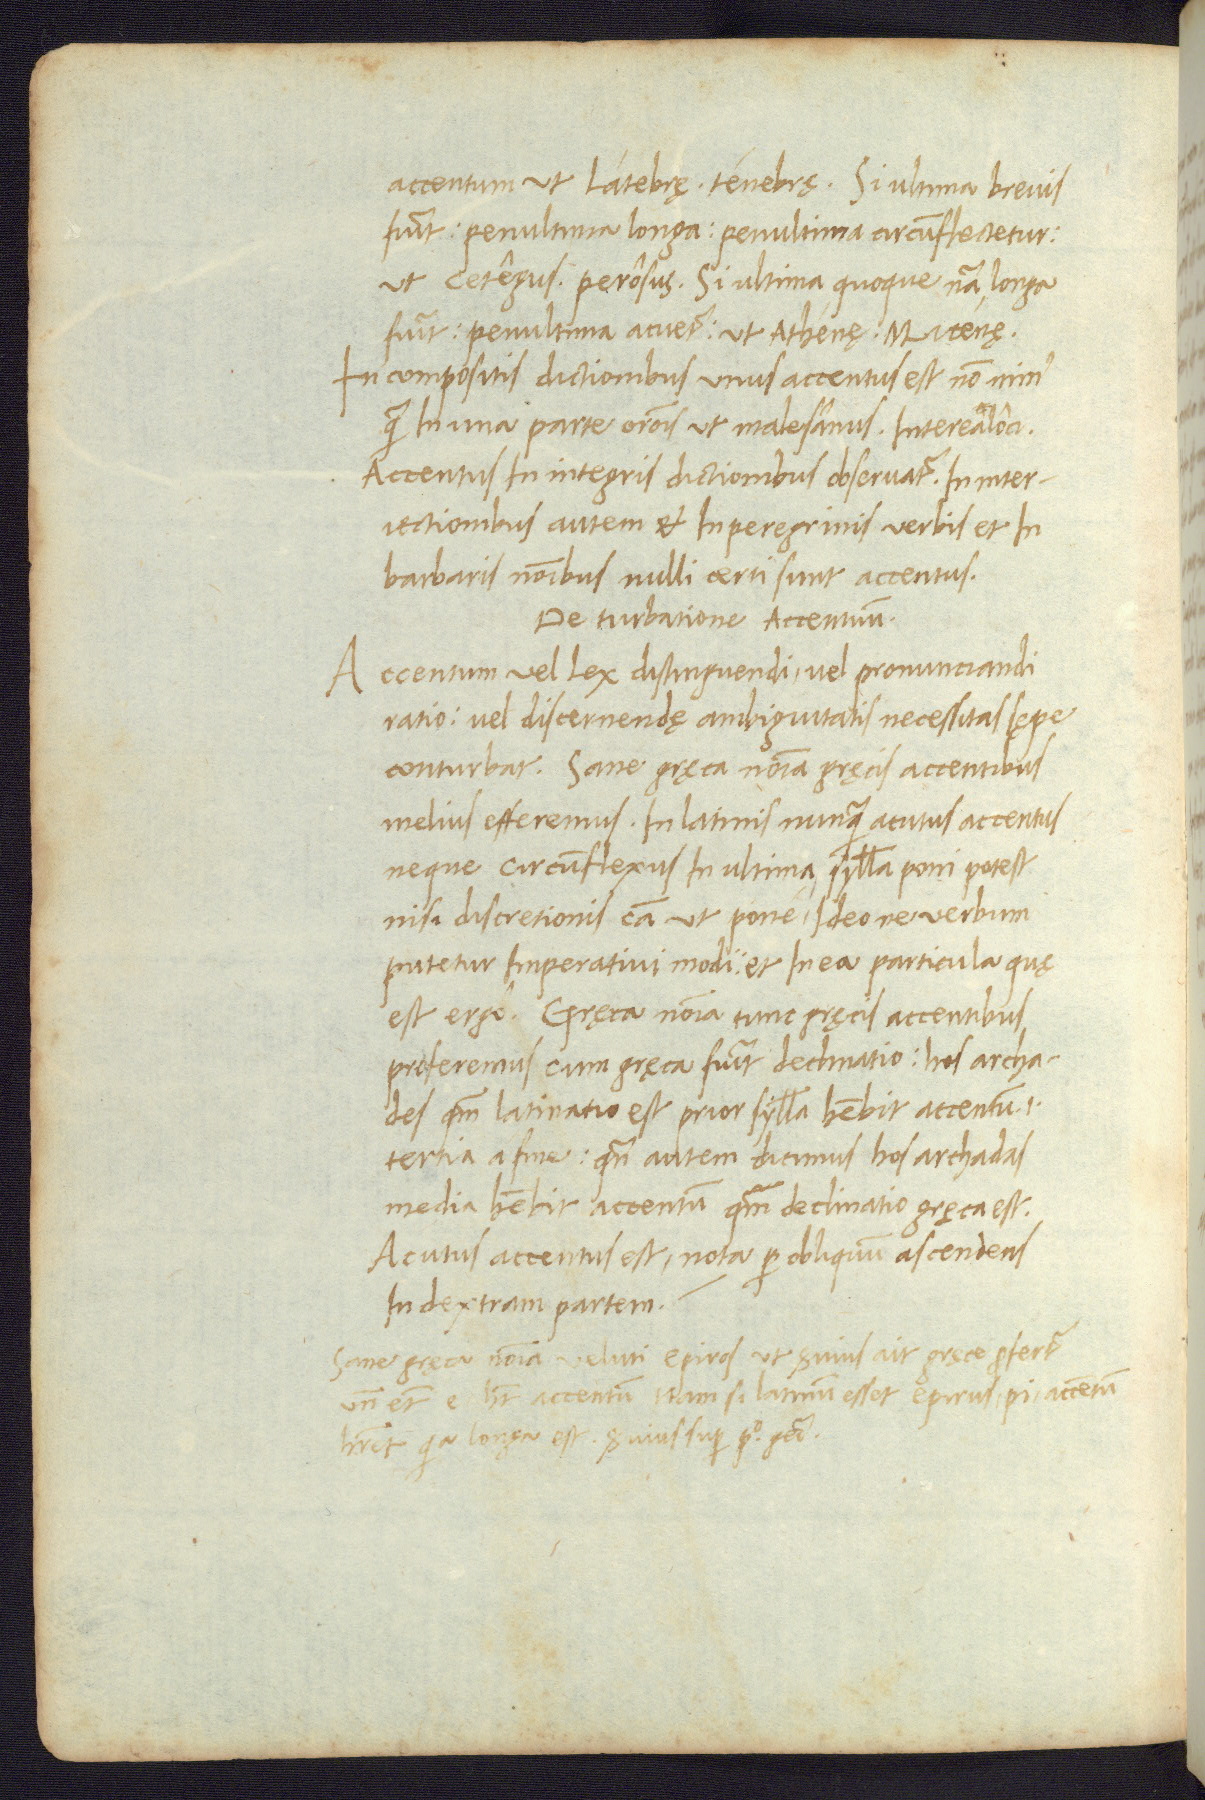 accentum ut Látebrę. ténebrę. Si ultima brevis
fuãt: penultima longa: penultima circũflectetur:
ut Cetêgus. perôsus. Si ultima quoque nã longa
fuãt: penultima acuet᷑: ut Athénę: Micénę.
In compositis dictionibus unus accentus est nõ min᷒
q̃ In una parte orõis ut malesânus. Interealôca.
Accentus In integris dictionibus observat᷑. In inter-
iectionibus autem & In peregrinis verbis et In
barbaris nõibus nulli certi sunt accentus.
De turbatione Accentuũ.
Accentum vel Lex distinguendi, vel pronunciandi
ratio: vel discernendę ambiguitatis necessitas sępe
conturbat. Sane gręca nõia gręcis accentibus
melius efferemus. In latinis nunq̃ acutus accentus
neque circũflexus In ultima sylla poni potest
nisi discretionis cã ut poné, Ideo ne verbum
putetur Imperativi modi: et In ea particula quę
est ergô. Gręca nõia tunc gręcis accentibus
proferemus cum gręca fuãt declinatio: hos archa-
des qm̃ latinatio est prior sylla hẽbit accentũ .i.
tertia a fine: qñ autem dicimus hos archadas
media hẽbit accentũ qm̃ declinatio gręca est.
Acutus accentus est, nota ꝑ obliquũ ascendens
In dextram partem. /
Sane gręca nõia veluti epiros ut ẜuius ait gręce ꝓfert᷑
uñ et᷑ e hẽt accentũ Nam si latinũ esset epirus, pi, accẽtũ
hr̃et q̃a longa est. ẜuius suꝑ p.º geõ.